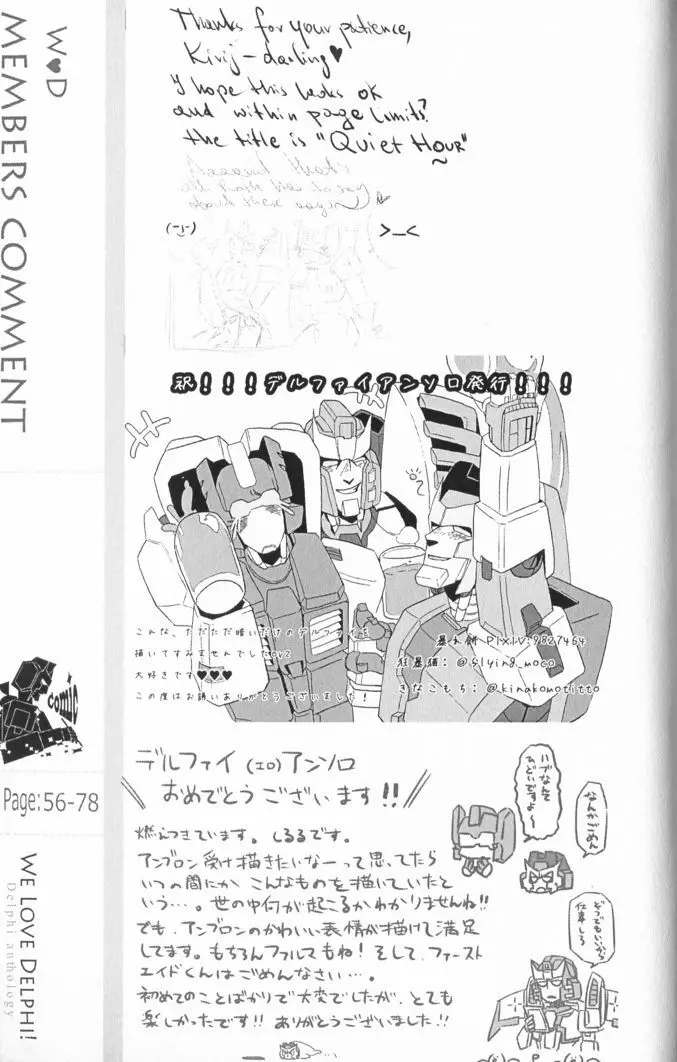 W♥D
MEMBERS COMMENT
Thanks for your patience,
Kivij-darling♥
I hope this looks ok
and within page limits?
the title is "Quiet Hour"
(-_-)
>_<
祝!!!デルファイアンソロ発行!!!
こんな、ただただ暗いだけのデルファイを
描いてすみませんでしたorz
大好きです♥♥♥
この度はお誘いありがとうございました!
PIXIV:9827464
狂暴猫:@flying_moco
きなこもち:@kinakomotitto
comic
Page:56-78
WE LOVE DELPHI!
Delphi anthology
デルファイ(エロ)アンソロ
おめでとうございます!!
燃えつきています。しるるです。
アンブロン受け描きたいなーって思ってたら
いつの間にかこんなものを描いていたと
いう…。世の中何が起こるかわかりませんね!!
でも、アンブロンのかわいい表情が描けて満足
してます。もちろんファルマもね!そして、ファースト
エイドくんはごめんなさい…。
初めてのことばかりで大変でしたが、とても
楽しかったです!!ありがとうございました!!
ハブなんて
ひどいですよ~
なんかごめん
どうでもいいから
仕事しろ